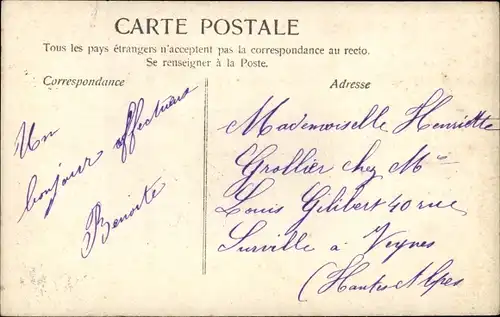 CARTE POSTALE
Tous les pays étrangers n'acceptent pas la correspondance au recto.
Se renseigner à la Poste.
Correspondance
Un
bonjour affectueux
Benoite
Adresse
Mademoiselle Henriette
Grollier chez Mr
Louis Gilibert 40 rue
Surville à Veynes
(Hautes Alpes